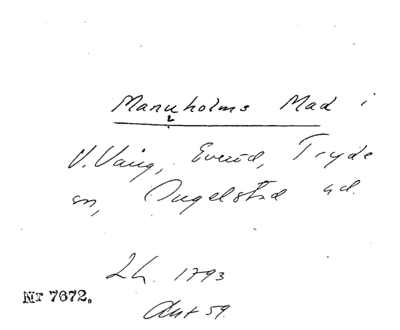 Manuholms Mad i
V. Vång, Everöd, Tryde
sn, Ingelstad hd.
2 h. 1793
Avt 59.
Nr 7672.